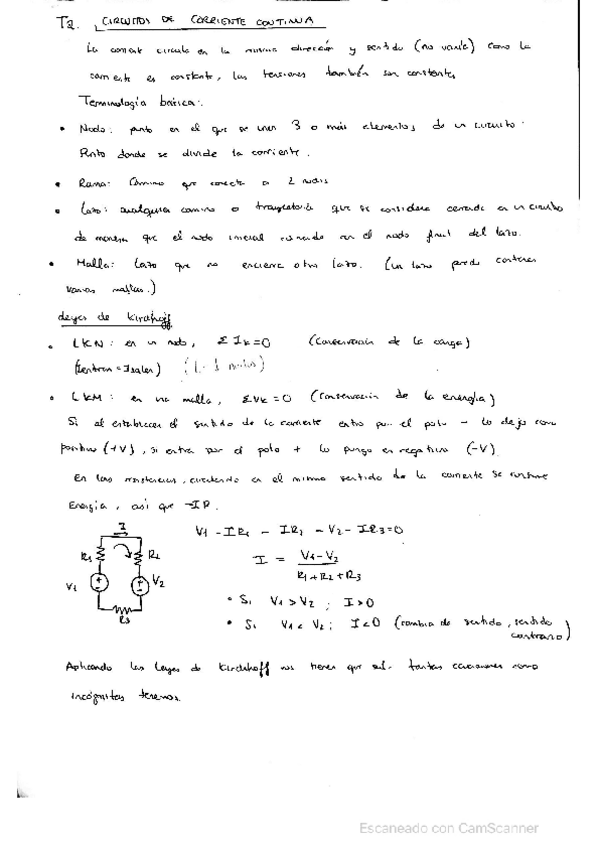 T2. CIRCUITOS DE CORRIENTE CONTINUA
La corriente circula en la misma dirección y sentido (no varía) como la
corriente es constante, las tensiones también son constantes
Terminología básica:
• Nodo: punto en el que se unen 3 o más elementos de un circuito.
Punto donde se divide la corriente.
• Rama: Camino que conecta a 2 nodos
• Lazo: cualquier camino o trayectoria que se considera cerrado en un circuito
de manera que el nodo inicial coincide con el nodo final del lazo.
• Malla: Lazo que no encierra otro lazo. (un lazo puede contener
varias mallas.)
Leyes de Kirchhoff
• LKN: en un nodo, ΣIk=0 (Conservación de la carga)
(Ientran = Isalen)
• LKM: en una malla, ΣVk=0 (Conservación de la energía)
Si al establecer el sentido de la corriente entro por el polo - lo dejo como
positivo (+V), si entra por el polo + lo pongo en negativo (-V).
En las resistencias, circulando en el mismo sentido de la corriente se consume
Energía, así que -IR.
I
R1 R2
V1 V2
R3
V1 - IR1 - IR2 - V2 - IR3=0
I = V1-V2 / R1+R2+R3
• Si V1 > V2 ; I>0
• Si V1 < V2 ; I<0 (cambia de sentido, sentido
contrario)
Aplicando las Leyes de Kirchhoff nos tienen que salir tantas ecuaciones como
incógnitas tenemos.
Escaneado con CamScanner